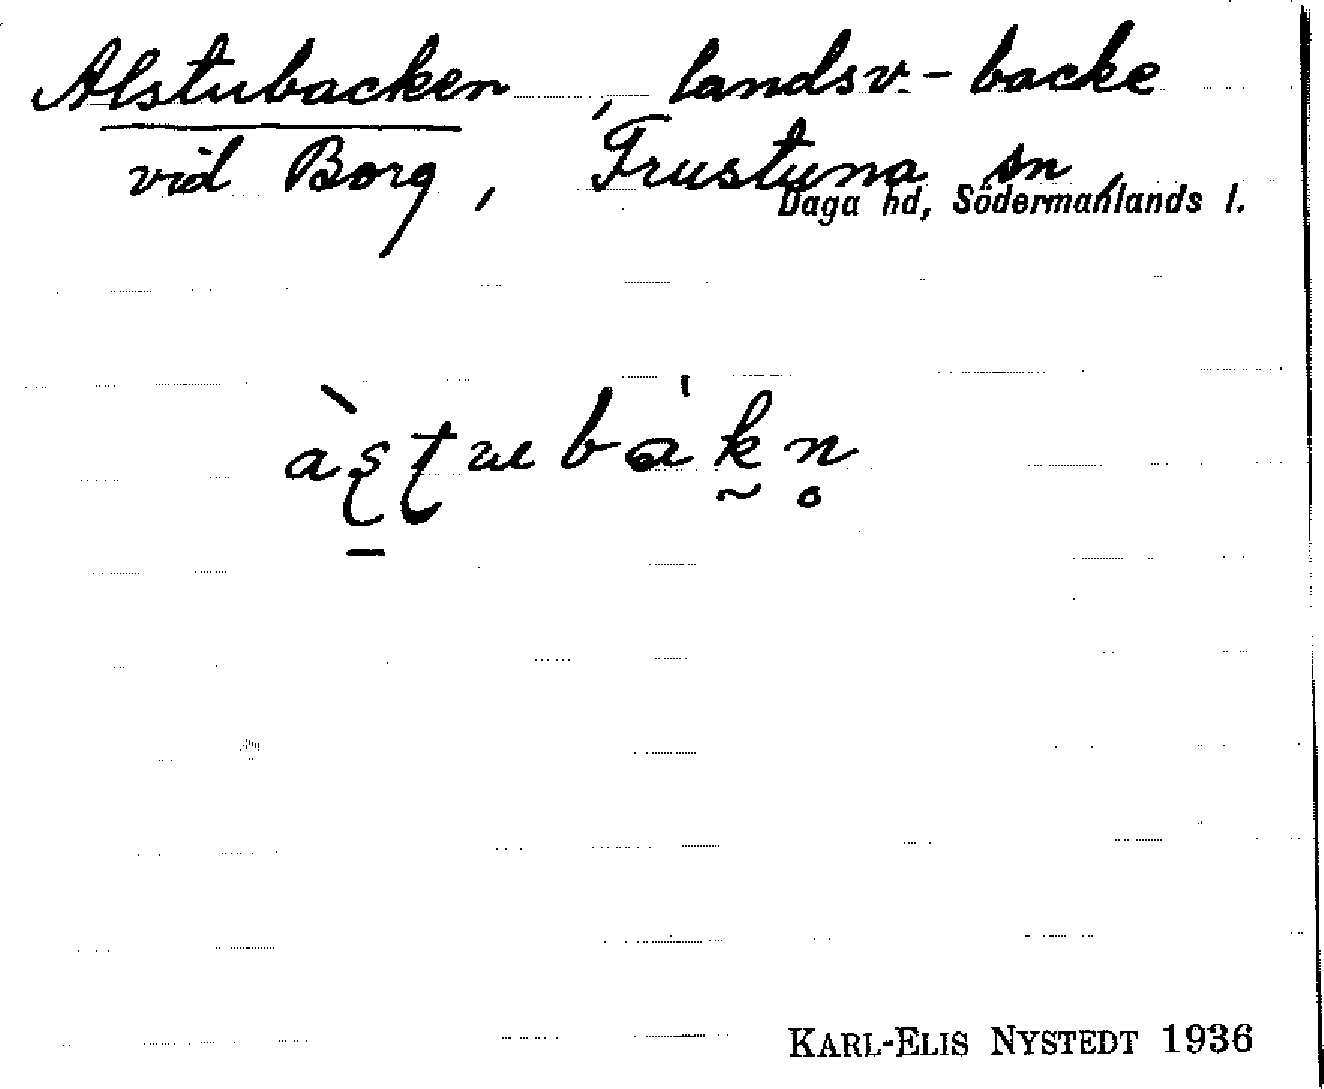 Alstubacken, landsv.-backe
vid Borg, Frustuna sn,
Daga hd, Södermanlands l.
KARL-ELIS NYSTEDT 1936